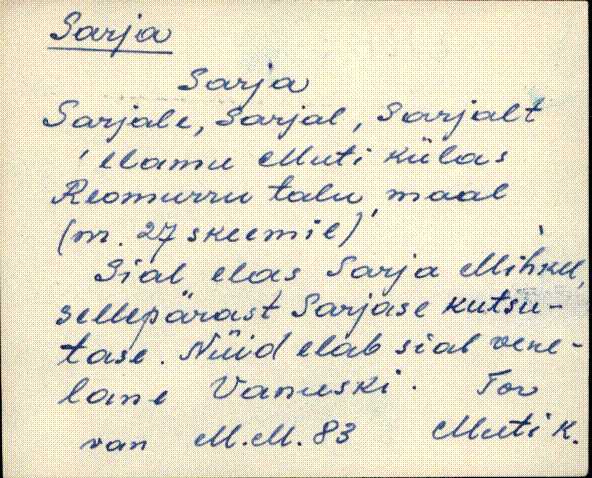 Sarja
Sarja
Sarjale, Sarjal, Sarjalt
'elamu Muti külas
Reomurru talu maal
(nr. 27 skeemil)
Sial elas Sarja Mihkel,
sellepärast Sarjase kutsu-
tase. Nüid elab sial vene-
lane Vaneski. Tor
van M.M. 83 Muti k.